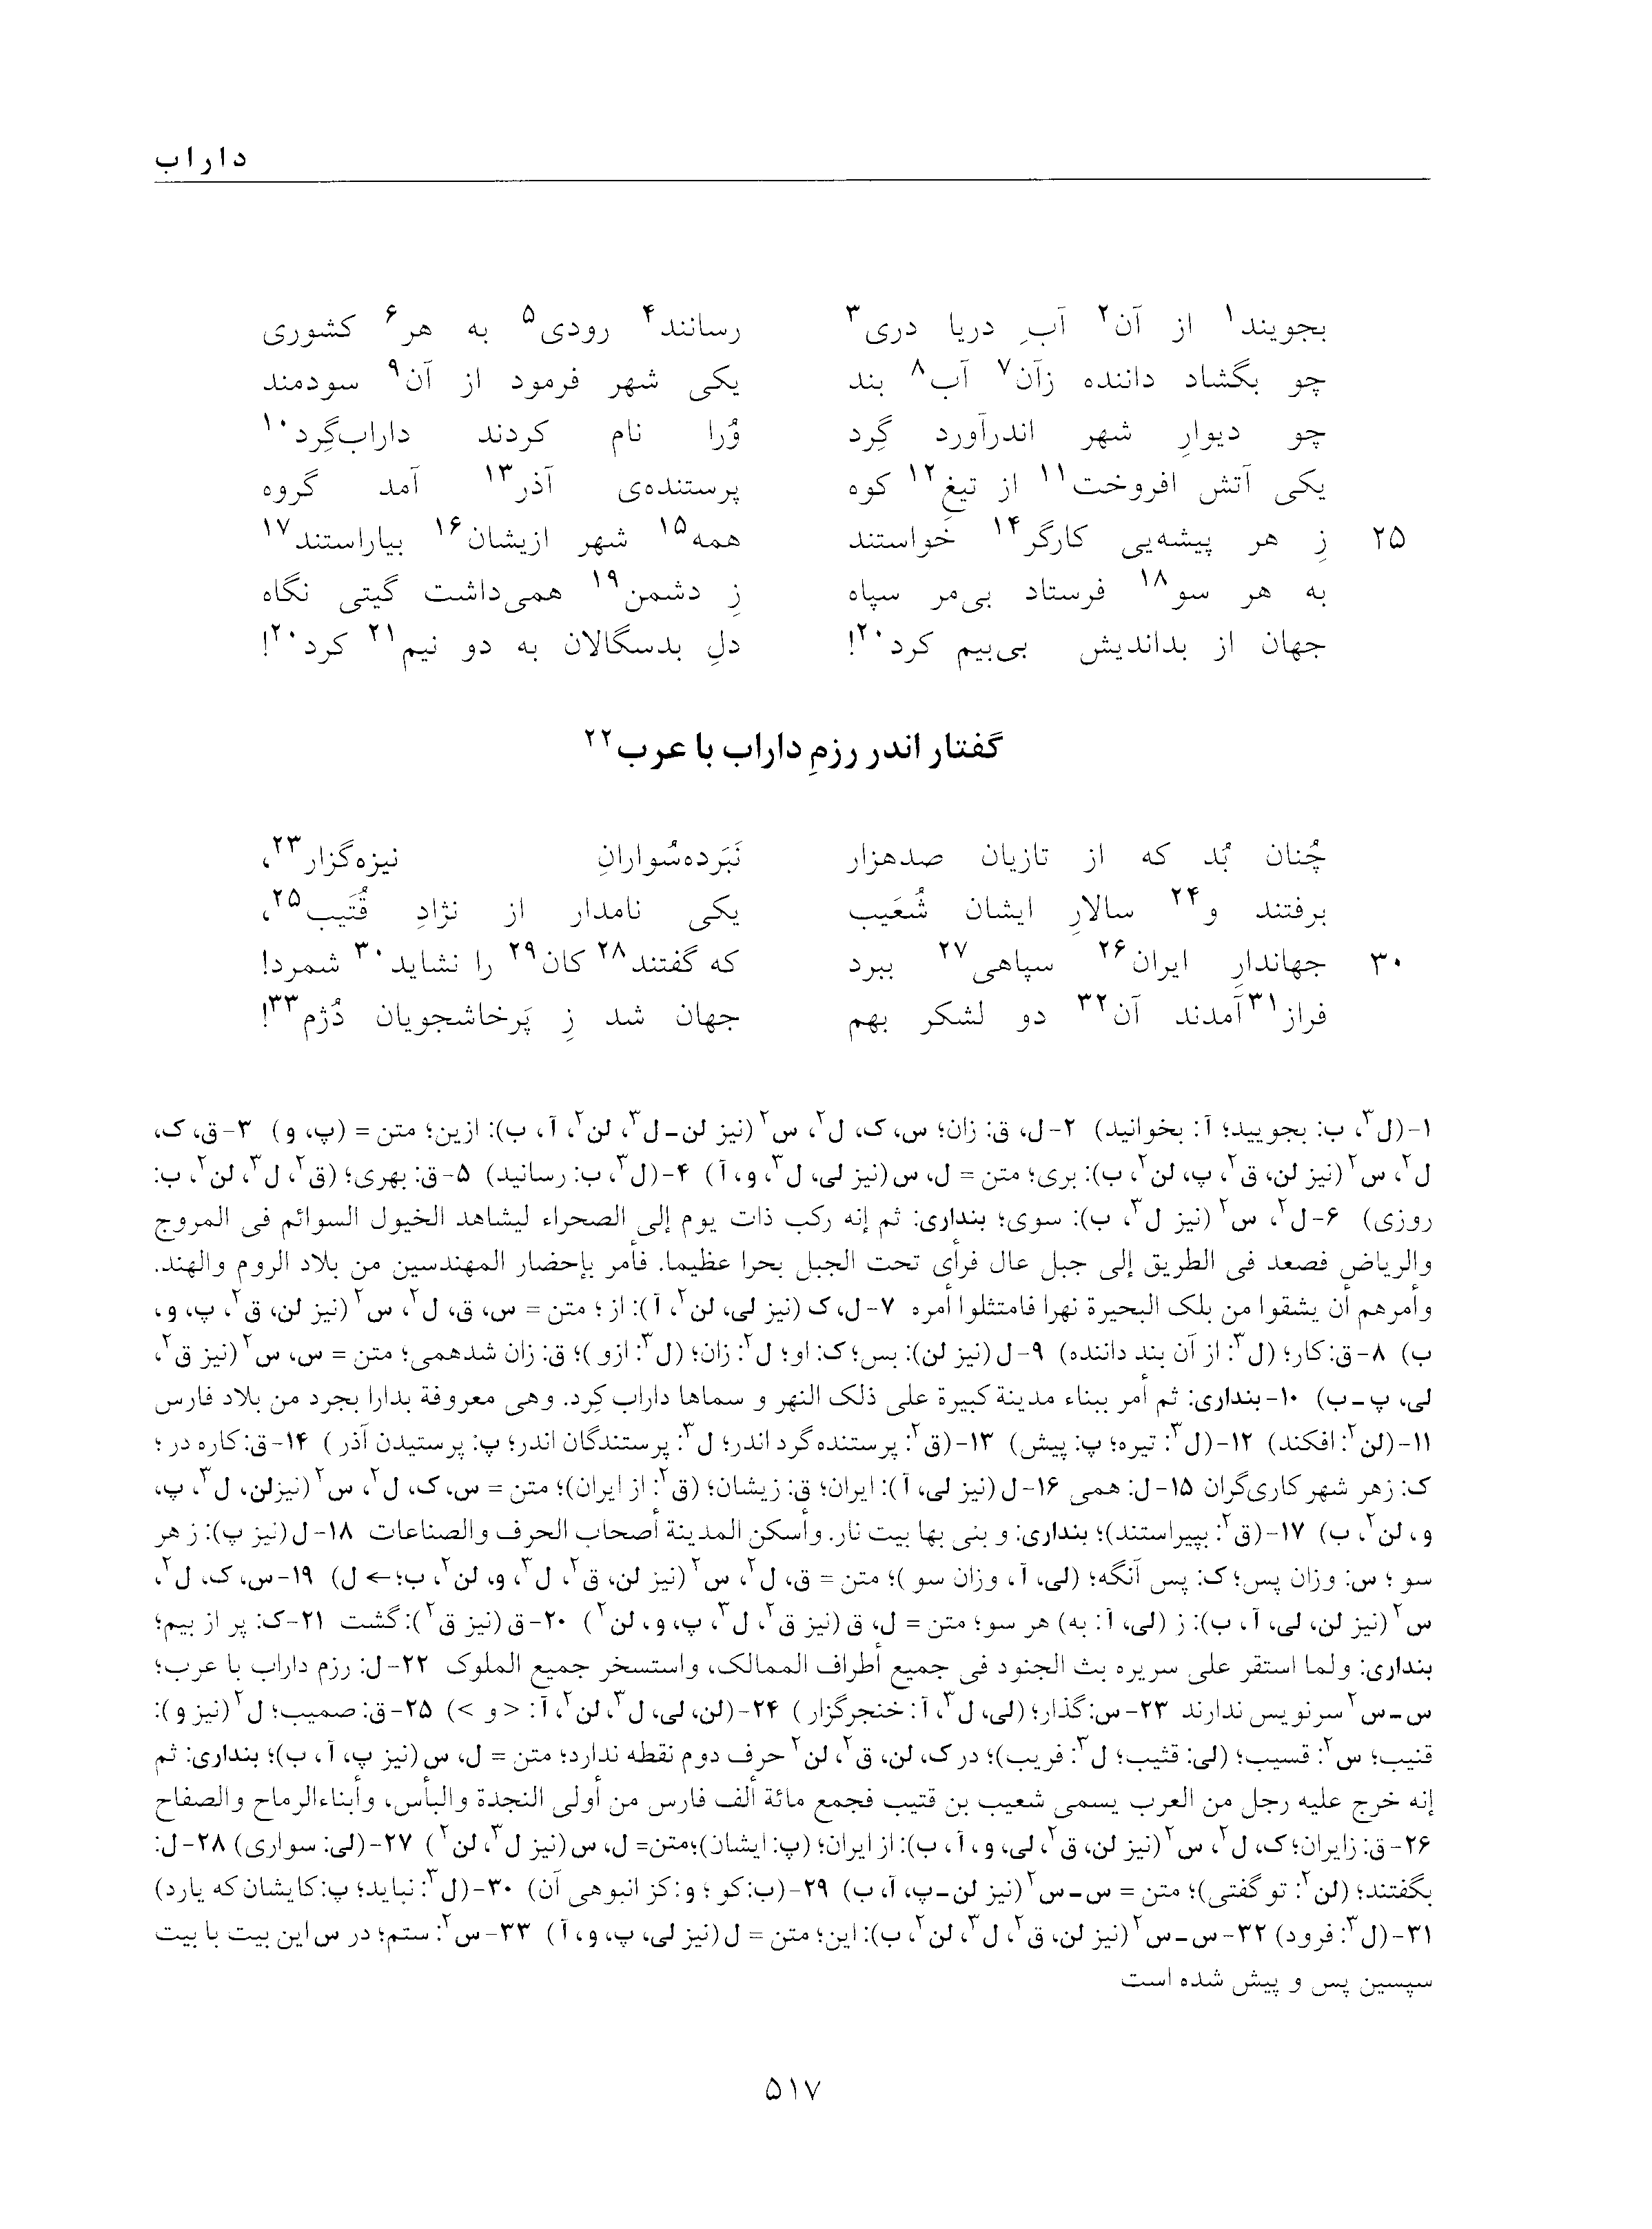 داراب
بجویند۱ از آن۲ آبِ دریا دری۳ رسانند۴ رودی۵ به هر۶ کشوری
چو بگشاد داننده زآن۷ آب۸ بند یکی شهر فرمود از آن۹ سودمند
چو دیوارِ شهر اندرآورد گِرد وُرا نام کردند داراب‌گِرد۱۰
یکی آتش افروخت۱۱ از تیغِ۱۲ کوه پرستنده‌ی آذر۱۳ آمد گروه
۲۵ زِ هر پیشه‌یی کارگر۱۴ خواستند همه۱۵ شهر ازیشان۱۶ بیاراستند۱۷
به هر سو۱۸ فرستاد بی‌مر سپاه زِ دشمن۱۹ همی‌داشت گیتی نگاه
جهان از بداندیش بی‌بیم کرد۲۰! دلِ بدسگالان به دو نیم۲۱ کرد۲۰!
گفتار اندر رزمِ داراب با عرب۲۲
چُنان بُد که از تازیان صدهزار نَبَرده‌سُوارانِ نیزه‌گزار۲۳،
برفتند و۲۴ سالارِ ایشان شُعَیب یکی نامدار از نژادِ قُتَیب۲۵،
۳۰ جهاندارِ ایران۲۶ سپاهی۲۷ ببرد که گفتند۲۸ کان۲۹ را نشاید۳۰ شمرد!
فراز۳۱آمدند آن۳۲ دو لشکر بهم جهان شد زِ پَرخاشجویان دُژم۳۳!
۱-(ل۳، ب: بجویید؛ آ: بخوانید) ۲-ل، ق: زان؛ س، ک، ل۲، س۲ (نیز لن-ل۳، لن۲، آ، ب): ازین؛ متن = (پ، و) ۳-ق، ک،
ل۲، س۲ (نیز لن، ق۲، پ، لن۲، ب): بری؛ متن = ل، س (نیز لی، ل۳، و، آ) ۴-(ل۳، ب: رسانید) ۵-ق: بهری؛ (ق۲، ل۳، لن۲، ب:
روزی) ۶-ل۲، س۲ (نیز ل۳، ب): سوی؛ بنداری: ثم إنه رکب ذات یوم إلی الصحراء لیشاهد الخیول السوائم فی المروج
والریاض فصعد فی الطریق إلی جبل عال فرأی تحت الجبل بحرا عظیما. فأمر بإحضار المهندسین من بلاد الروم والهند.
وأمرهم أن یشقوا من بلک البحیرة نهرا فامتثلوا أمره ۷-ل، ک (نیز لی، لن۲، آ): از؛ متن = س، ق، ل۲، س۲ (نیز لن، ق۲، پ، و،
ب) ۸-ق: کار؛ (ل۳: از آن بند داننده) ۹-ل (نیز لن): بس؛ ک: او؛ ل۲: زان؛ (ل۳: ازو)؛ ق: زان شدهمی؛ متن = س، س۲ (نیز ق۲،
لی، پ-ب) ۱۰-بنداری: ثم أمر ببناء مدینة کبیرة علی ذلک النهر و سماها داراب کِرد. وهی معروفة بدارا بجرد من بلاد فارس
۱۱-(لن۲: افکند) ۱۲-(ل۳: تیره؛ پ: پیش) ۱۳-(ق۲: پرستنده گرد اندر؛ ل۳: پرستندگان اندر؛ پ: پرستیدن آذر) ۱۴-ق: کاره در؛
ک: زهر شهر کاری‌گران ۱۵-ل: همی ۱۶-ل (نیز لی، آ): ایران؛ ق: زیشان؛ (ق۲: از ایران)؛ متن = س، ک، ل۲، س۲ (نیزلن، ل۳، پ،
و، لن۲، ب) ۱۷-(ق۲: بپیراستند)؛ بنداری: و بنی بها بیت نار. وأسکن المدینة أصحاب الحرف والصناعات ۱۸-ل (نیز پ): ز هر
سو؛ س: وزان پس؛ ک: پس آنگه؛ (لی، آ، وزان سو)؛ متن = ق، ل۲، س۲ (نیز لن، ق۲، ل۳، و، لن۲، ب؛← ل) ۱۹-س، ک، ل۲،
س۲ (نیز لن، لی، آ، ب): ز (لی، آ: به) هر سو؛ متن = ل، ق (نیز ق۲، ل۳، پ، و، لن۲) ۲۰-ق (نیز ق۲): گشت ۲۱-ک: پر از بیم؛
بنداری: ولما استقر علی سریره بث الجنود فی جمیع أطراف الممالک، واستسخر جمیع الملوک ۲۲-ل: رزم داراب با عرب؛
س-س۲ سرنویس ندارند ۲۳-س: گذار؛ (لی، ل۳، آ: خنجرگزار) ۲۴-(لن، لی، ل۳، لن۲، آ: <و>) ۲۵-ق: صمیب؛ ل۲ (نیز و):
قنیب؛ س۲: قسیب؛ (لی: قثیب؛ ل۳: فریب)؛ در ک، لن، ق۲، لن۲ حرف دوم نقطه ندارد؛ متن = ل، س (نیز پ، آ، ب)؛ بنداری: ثم
إنه خرج علیه رجل من العرب یسمی شعیب بن قتیب فجمع مائة ألف فارس من أولی النجدة والبأس، وأبناءالرماح والصفاح
۲۶-ق: زایران؛ ک، ل۲، س۲ (نیز لن، ق۲، لی، و، آ، ب): از ایران؛ (پ: ایشان)؛متن= ل، س (نیز ل۳، لن۲) ۲۷-(لی: سواری) ۲۸-ل:
بگفتند؛ (لن۲: تو گفتی)؛ متن = س-س۲ (نیز لن-پ، آ، ب) ۲۹-(ب: کو؛ و: کز انبوهی آن) ۳۰-(ل۳: نباید؛ پ: کایشان که یارد)
۳۱-(ل۳: فرود) ۳۲-س-س۲ (نیز لن، ق۲، ل۳، لن۲، ب): این؛ متن = ل (نیز لی، پ، و، آ) ۳۳-س۲: ستم؛ در س این بیت با بیت
سپسین پس و پیش شده است
۵۱۷